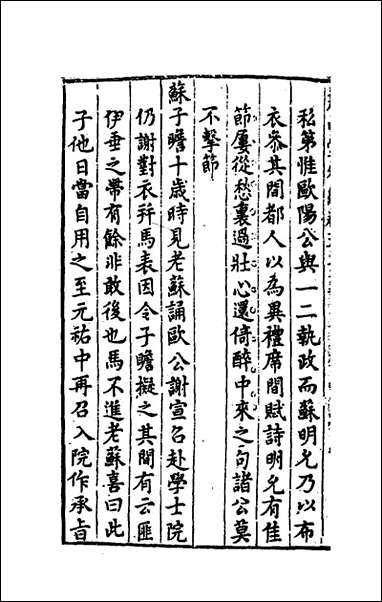 私第惟歐陽公與一二執政而蘇明允乃以布
衣參其間都人以為異禮席間賦詩明允有佳
節屢從愁裏過壯心還倚醉中來之句諸公莫
不擊節
蘇子瞻十歲時見老蘇誦歐公謝宣召赴學士院
仍謝對衣并馬表因令子瞻擬之其間有云匪
伊垂之帶有餘非敢後也馬不進老蘇喜曰此
子他日當自用之至元祐中再召入院作承旨